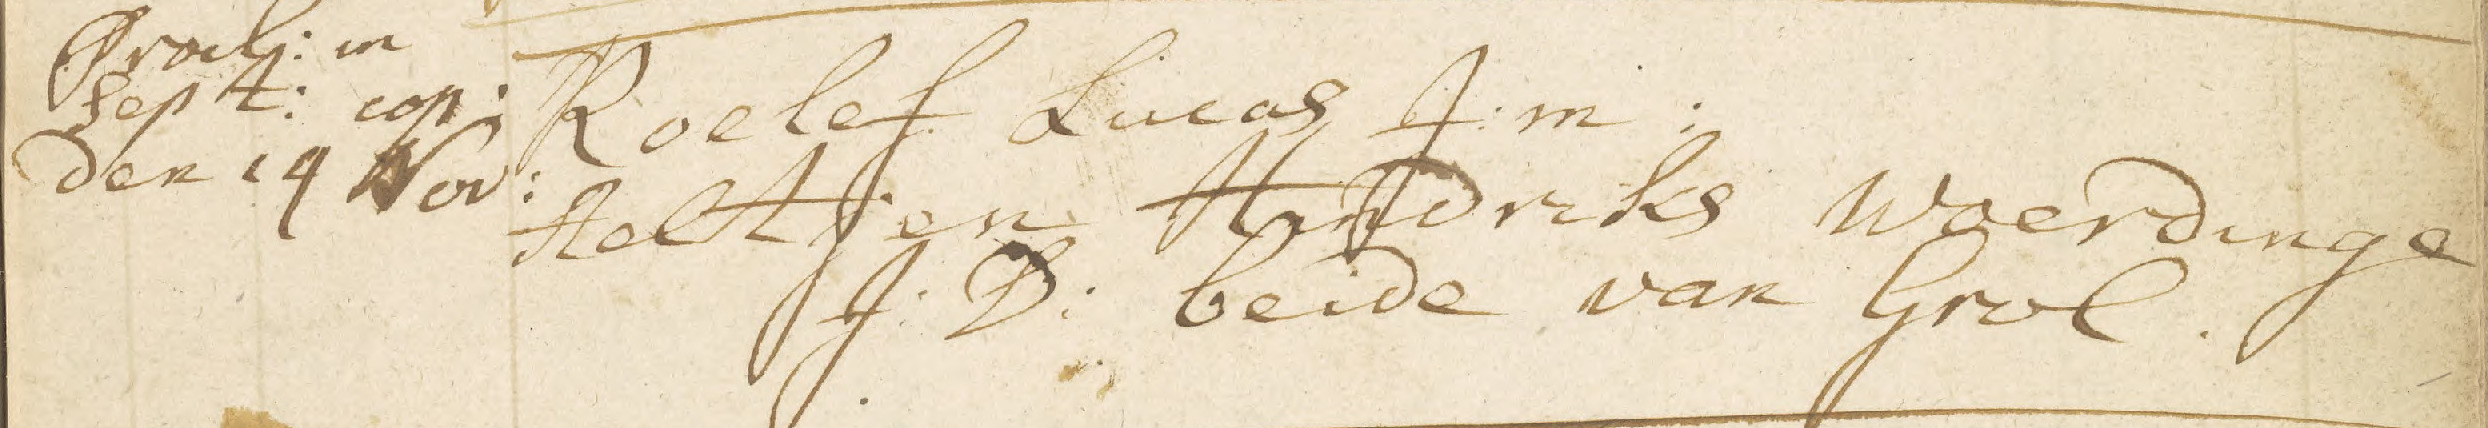 Procl: in
Sept: cop:
den 19 Nov:
Roelef Lucas J: m:
Aeltjen Hindriks Woerdinge
J: D: beide van Grol.